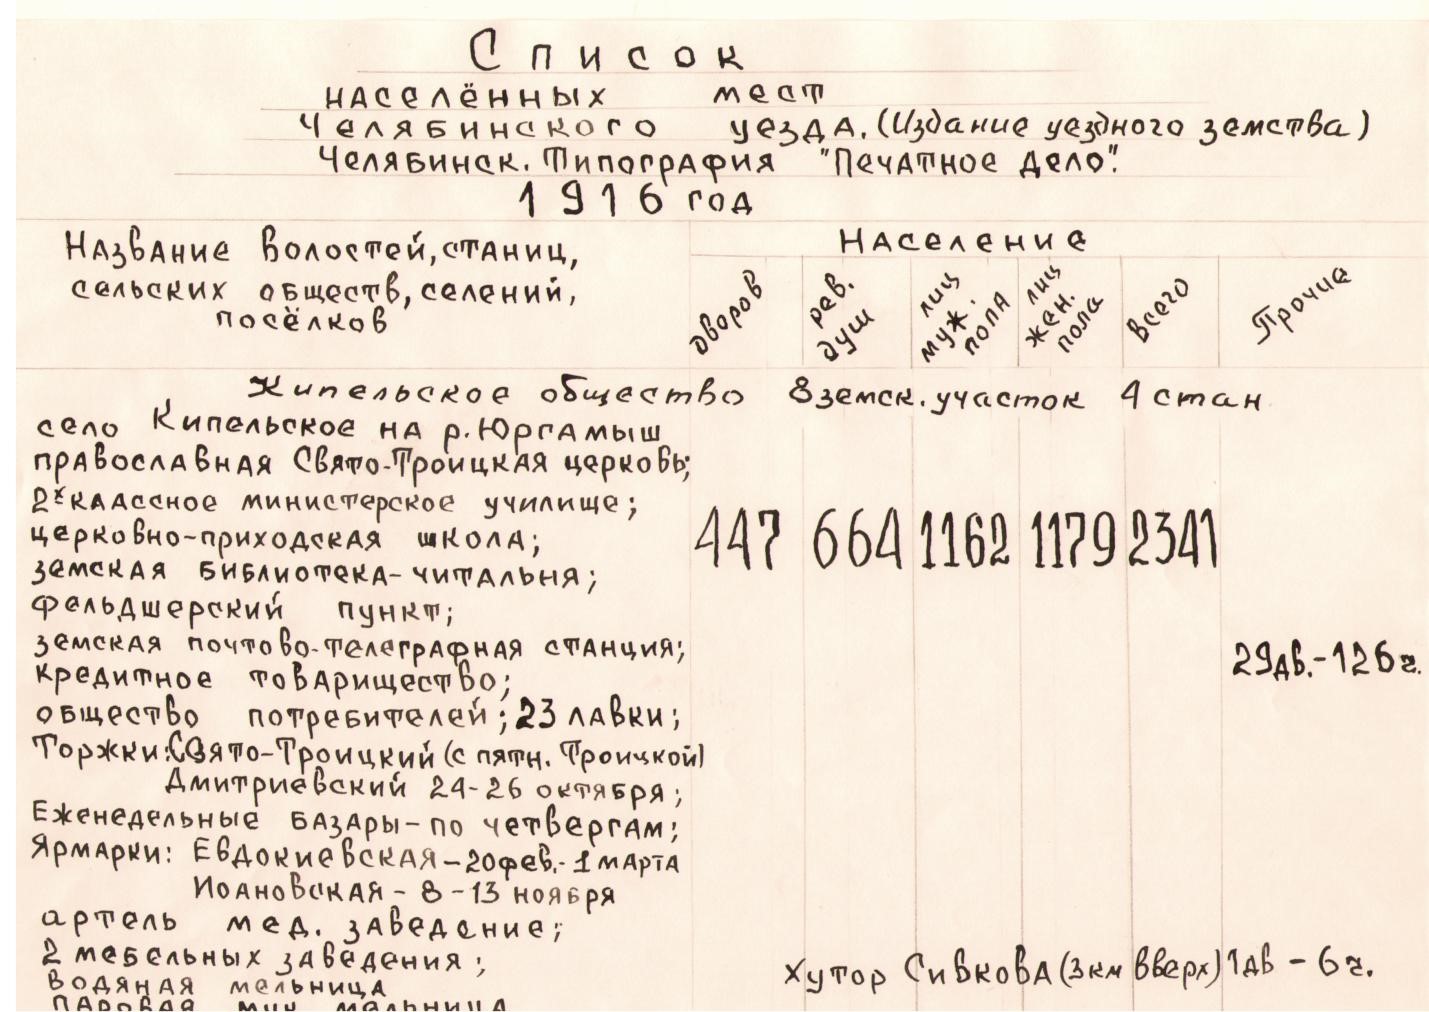 Список
населённых мест
Челябинского уезда. (Издание уездного земства)
Челябинск. Типография "Печатное дело".
1916 год
Название волостей, станиц,
сельских обществ, селений,
посёлков
Население
дворов
рев. душ
лиц муж. пола
лиц жен. пола
всего
Прочие
Кипельское общество 8 земск. участок 4 стан
село Кипельское на р. Юргамыш
православная Свято-Троицкая церковь;
2х классное министерское училище;
церковно-приходская школа;
447 664 1162 1179 2341
земская библиотека-читальня;
фельдшерский пункт;
земская почтово-телеграфная станция;
29 дв. - 126 ч.
кредитное товарищество;
общество потребителей; 23 лавки;
Торжки: Свято-Троицкий (с пятн. Троицкой)
Дмитриевский 24-26 октября;
Еженедельные базары - по четвергам;
Ярмарки: Евдокиевская - 20 фев. - 1 марта
Иоановская - 8 - 13 ноября
артель мед. заведение;
2 мебельных заведения;
Хутор Сивкова (3 км вверх) 1 дв - 6 ч.
водяная мельница
паровая мук. мельница